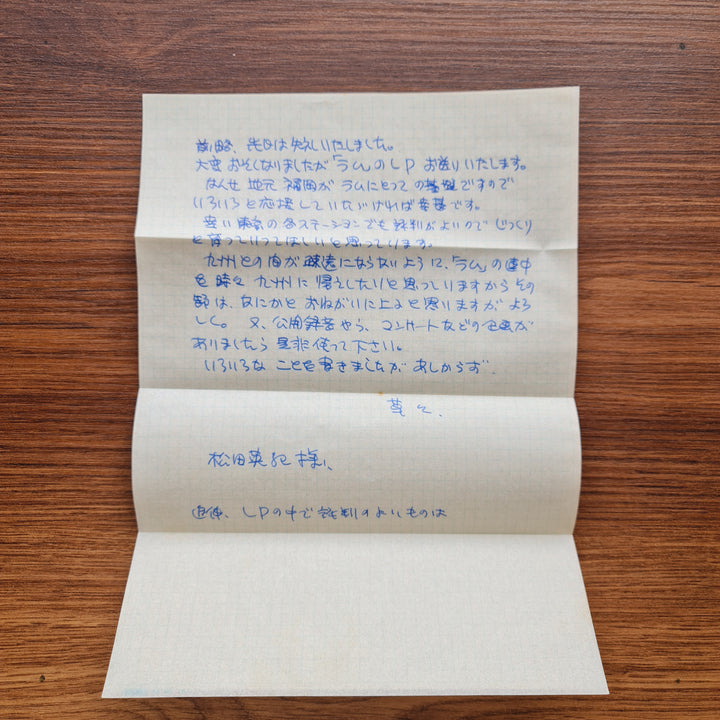 前略、先日は失礼いたしました。
大変おそくなりましたが「ラム」のLPお送りいたします。
なんせ地元福岡がラムにとっての基盤ですので
いろいろと応援していただければ幸甚です。
幸い東京の各ステーションでも評判がよいので じっくり
と育っていってほしいと思っています。
九州との向が疎遠にならないように、「ラム」の連中
を時々九州に帰えしたいと思っていますからその
節は、なにかとおねがいに上ると思いますがよろ
しく。又、公開録音やら、コンサートなどの企画が
ありましたら是非使って下さい。
いろいろなことを書きましたがあしからず.
草々、
松田英紀様、
追伸、LPの中で評判のよいものは